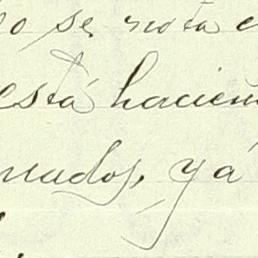 o se nota e
está hacien
nudos, yá